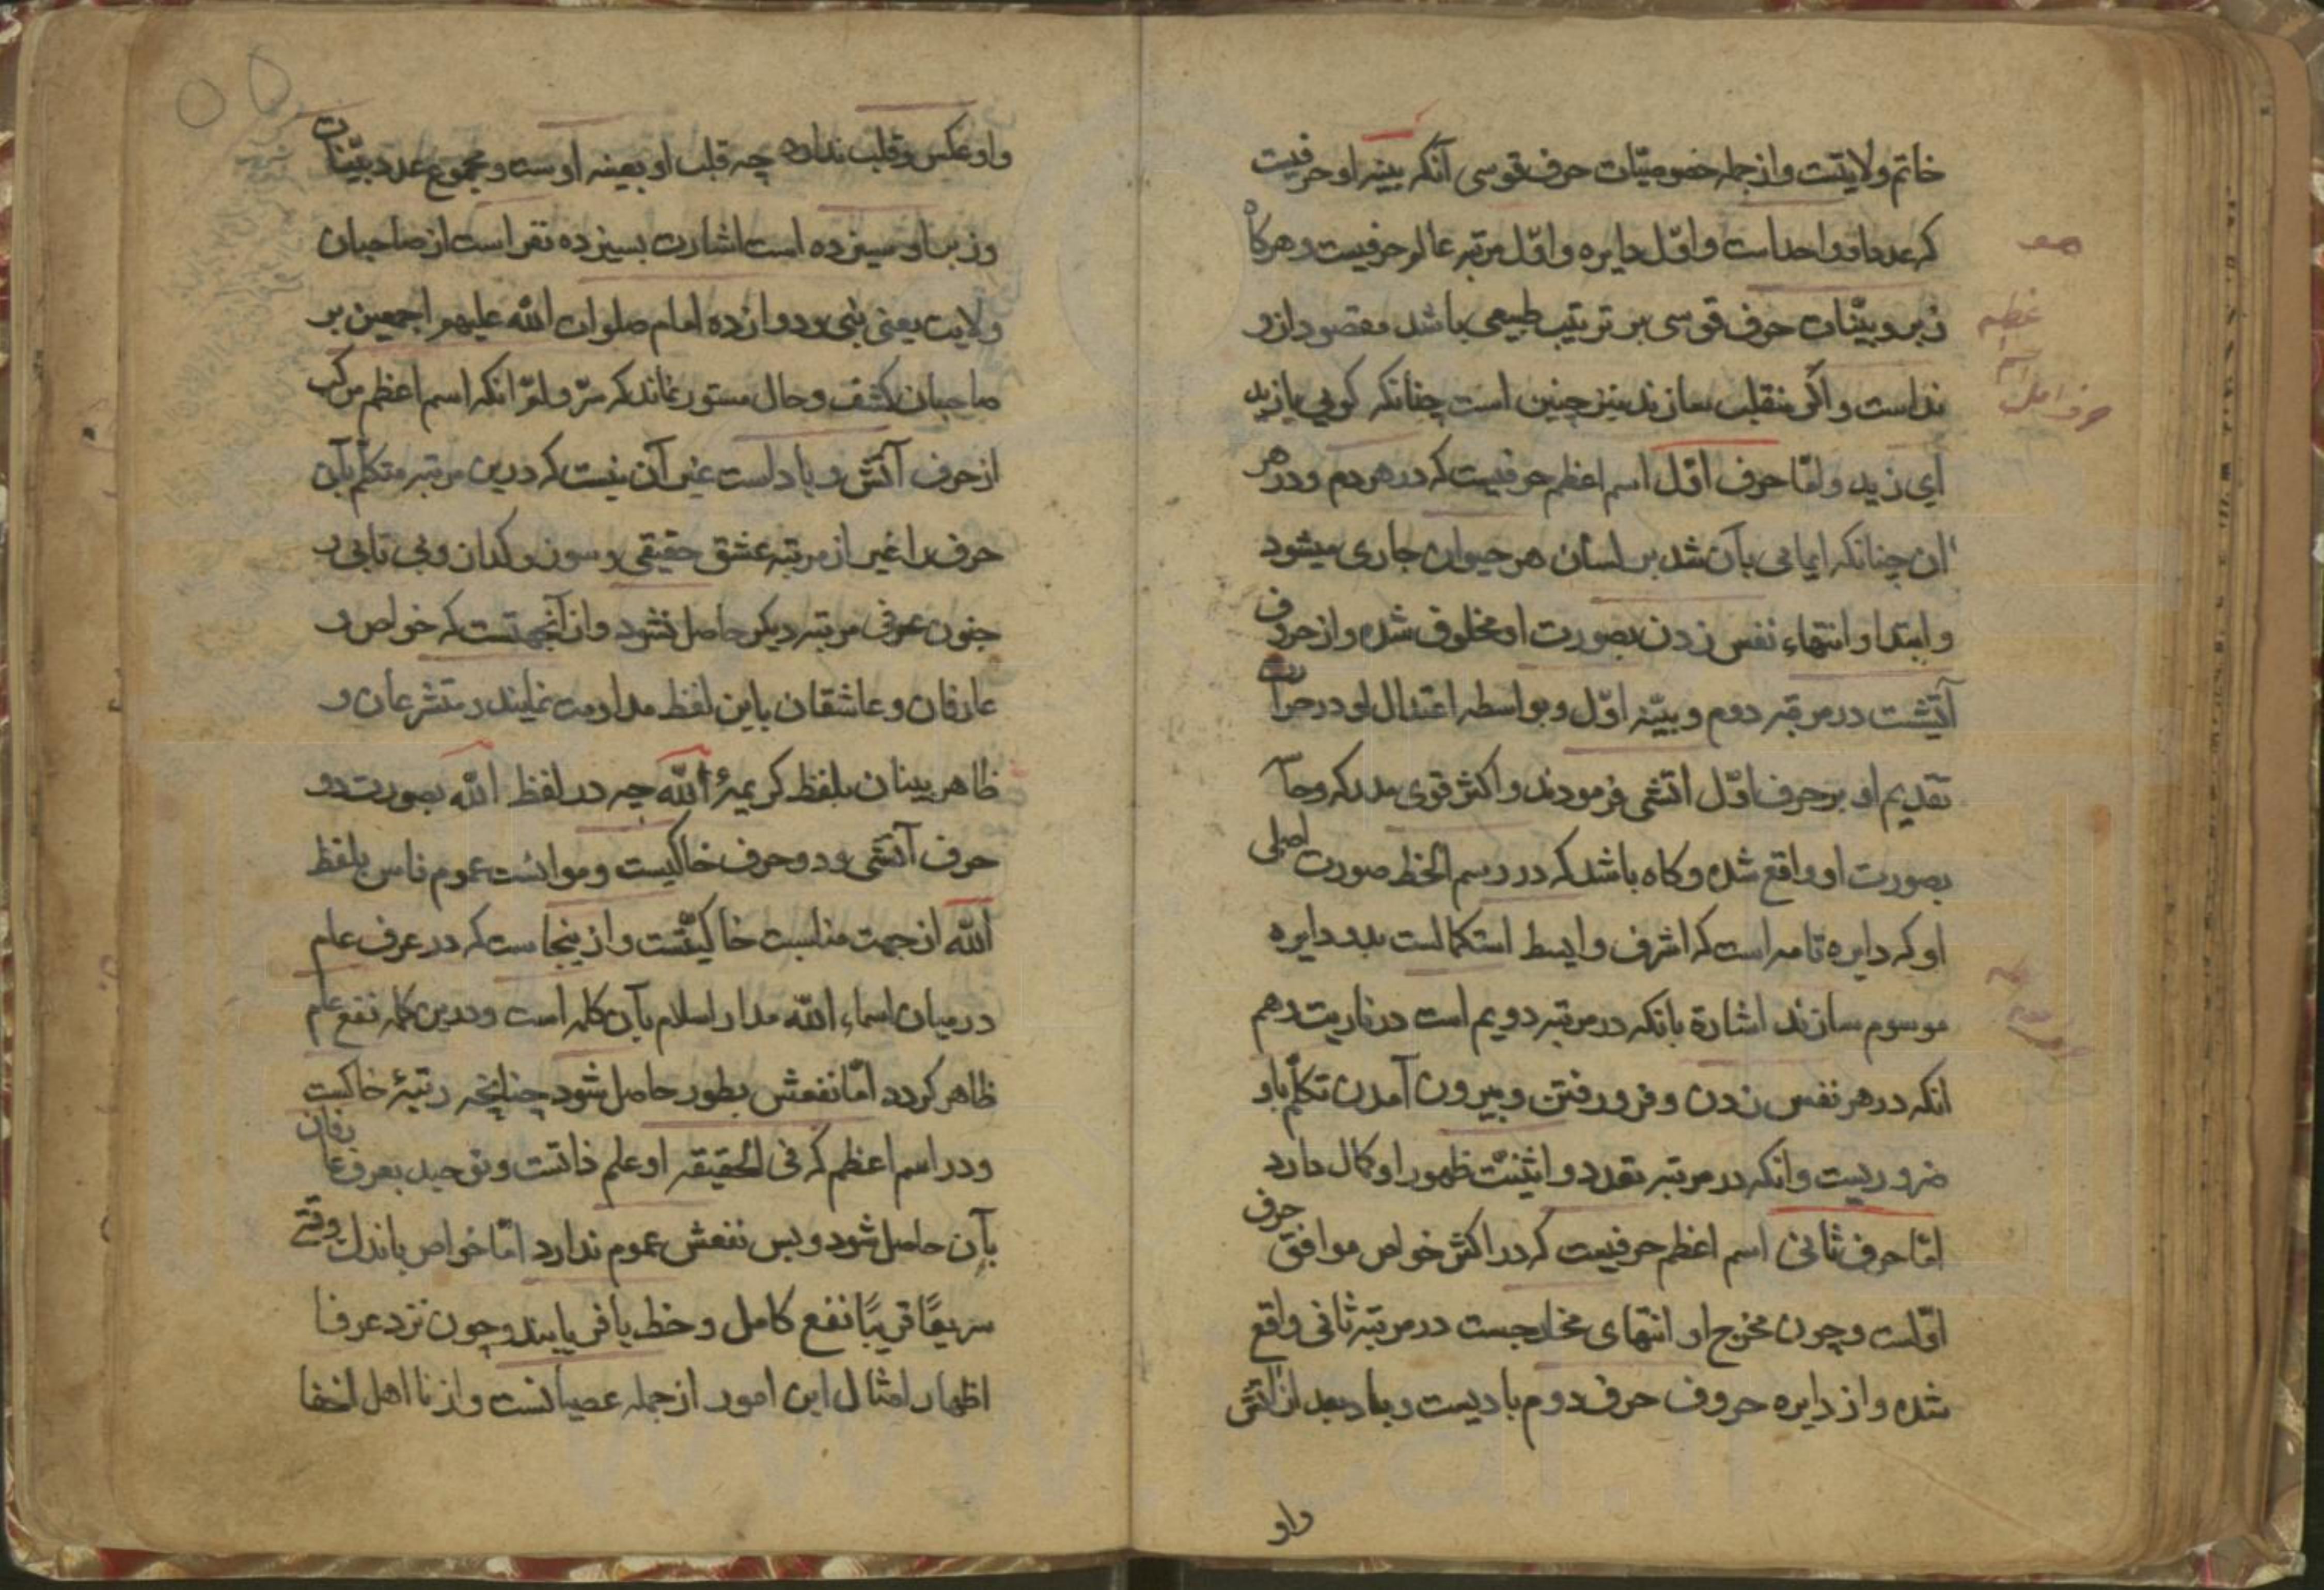 خاتم ولایتست و از جمله خصوصیّات حرف قوسی آنکه بینه او حرفیست
که عدد او واحد است و اوّل دایره و اوّل مرتبه عالم حرفیست و هرکاه
زبر و بیّنات حرف قوسی بر ترتیب طبیعی باشد مقصود ازو
نداست و اکر منقلب سازند نیز چنین است چنانکه کویی یا زید
ای زید و امّا حرف اوّل اسم اعظم حرفیست که در هر دم و در هر
ان چنانکه ایمایی بآن شد بر لسان هر حیوان جاری میشود
و ابتدا و انتهاء نفس زدن بصورت او مخلوق شده و از حروف
آتشیست در مرتبه دوم و بیّنه اوّل و بواسطه اعتدال او در حرارت
تقدیم او بر حرف اوّل اتشی فرمودند و اکثر قوی مدرکه و حا
بصورت او واقع شده و کاه باشد که در رسم الخط صورت اصلی
او که دایره تامه است که اشرف و ابسط استکمالست بدو دایره
موسوم سازند اشارة بانکه در مرتبه دویم است در ناریت و هم
انکه در هر نفس زدن و فرو رفتن و بیرون آمدن تکلّم باو
ضروریست و انکه در مرتبه تعدد و اثینیّت ظهور او کمال دارد
امّا حرف ثانی اسم اعظم حرفیست که در اکثر خواص موافق حرف
اوّلست و چون مخرج او انتهای مخارجست در مرتبه ثانی واقع
شده و از دایره حروف حرف دوم بادیست و باد بعد از آتش
واو
هو
اعظم
اسم
حرف اول
واو عکس و قلب ندارد چه قلب او بعینه اوست و مجموع عدد بیّنات
و زبر او سیزده است اشارت بسیزده نفر است از صاحبان
ولایت یعنی نبی و دوازده امام صلوات الله علیهم اجمعین بر
صاحبان کشف و حال مستور نماند که سرّ و لمّ انکه اسم اعظم مرکب
از حرف آتش و باد است غیر آن نیست که درین مرتبه متکلّم بآن
حرف را غیر از مرتبه عشق حقیقی و سوز و کداز و بی تابی و
جنون عرفی مرتبه دیکر حاصل نشود و از آنجهتست که خواص و
عارفان و عاشقان باین لفظ مداومت نمایند و متشرعان و
ظاهر بینان بلفظ کریمهٔ الله چه در لفظ الله بصورت دو
حرف آتشی و دو حرف خاکیست و موانست عموم ناس بلفظ
الله از جهت مناسبت خاکیّتست و از ینجاست که در عرف عام
در میان اسماء الله مدار اسلام بآن کلمه است و درین کلمه نفع عام
ظاهر کردد امّا نفعش بطور حاصل شود چنانچه رتبهٔ خاکیت
و در اسم اعظم که فی الحقیقه او علم ذاتست و توحید بعرف عارفان
بآن حاصل شود و بس نفعش عموم ندارد امّا خواص باندک وقتی
سریعًا قریبًا نفع کامل و حظ یافر یابند و چون نزد عرفا
اظهار امثال این امور از جمله عصیانست و از نا اهل اخفا